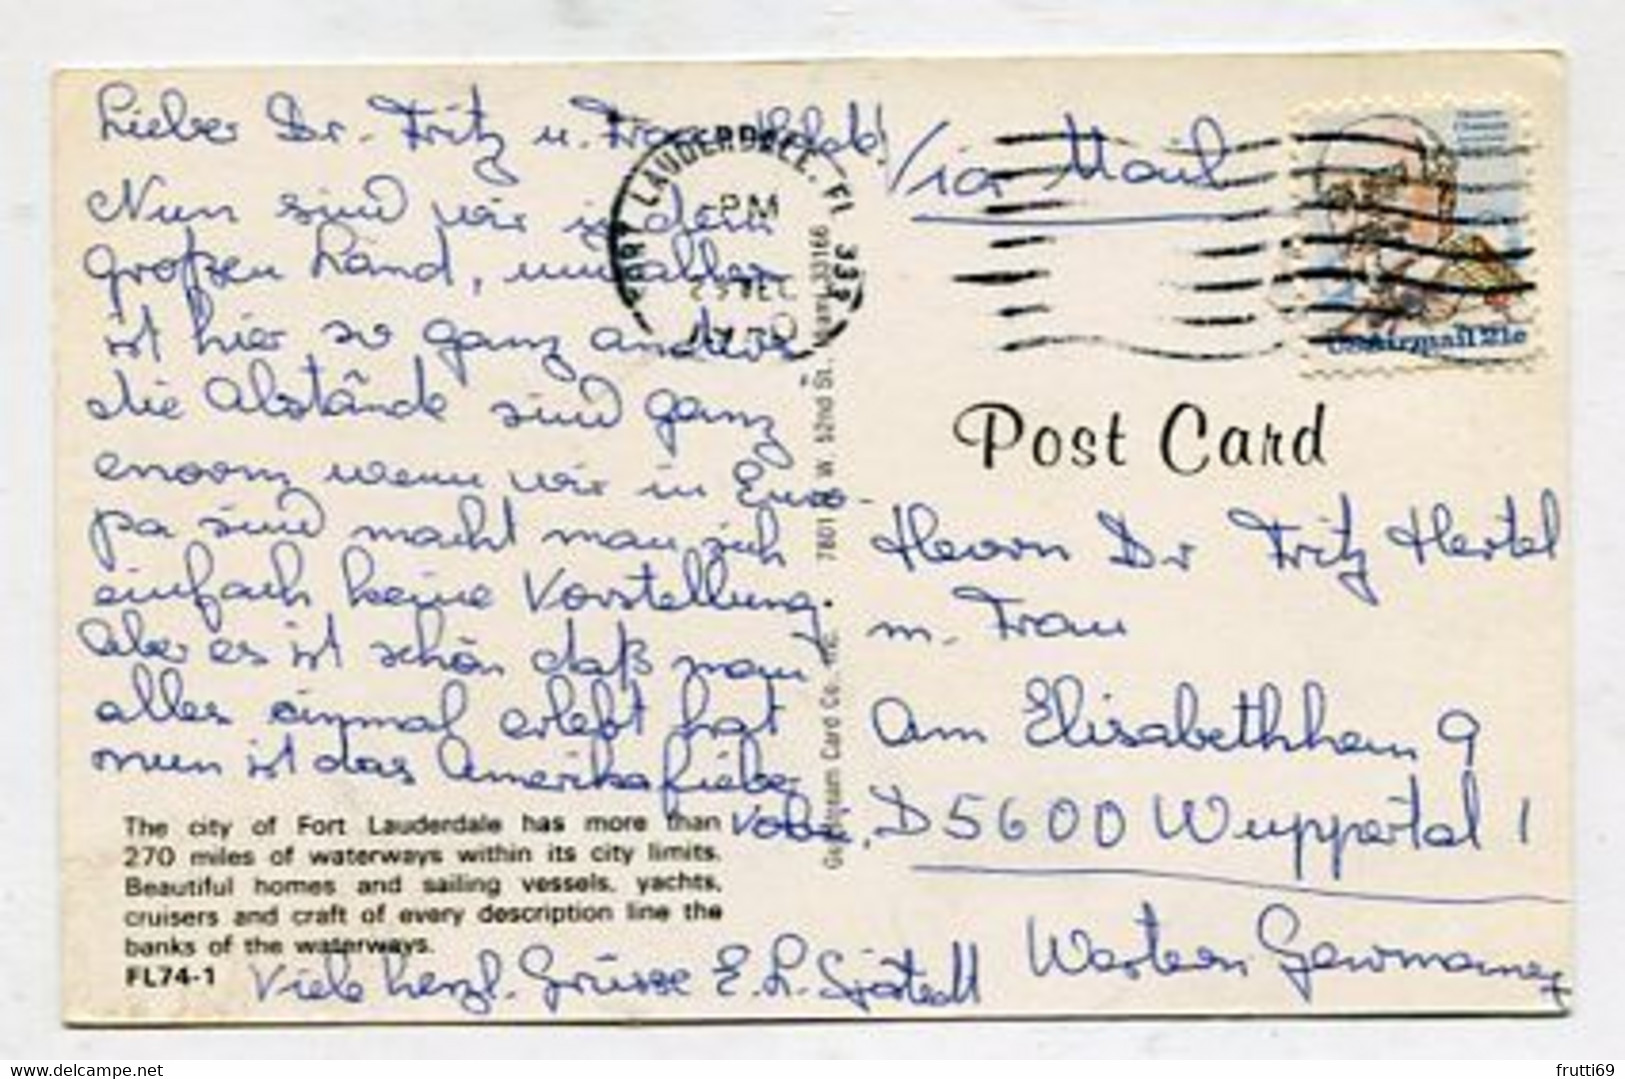 Lieber Dr. Fritz u. Frau
Nun sind wir in dem
großen Land, und alles
ist hier so ganz anders
die Abstände sind ganz
enorm wenn wir in Euro-
pa sind macht man sich
einfach keine Vorstellung.
Aber es ist schön daß man
alles einmal erlebt hat
nun ist das Amerikafieber
vorbei,
The city of Fort Lauderdale has more than
270 miles of waterways within its city limits.
Beautiful homes and sailing vessels, yachts,
cruisers and craft of every description line the
banks of the waterways.
FL74-1
Viele herzl. Grüsse E. L.
FORT LAUDERDALE, FL 333
PM
Card Co., Inc. 7801 W. 52nd St. Miami 33166
Via Mail
USAirmail 21c
Post Card
Herrn Dr Fritz Hertel
m. Frau
am Elisabethheim 9
D 5600 Wuppertal 1
Western Germany
frutti69